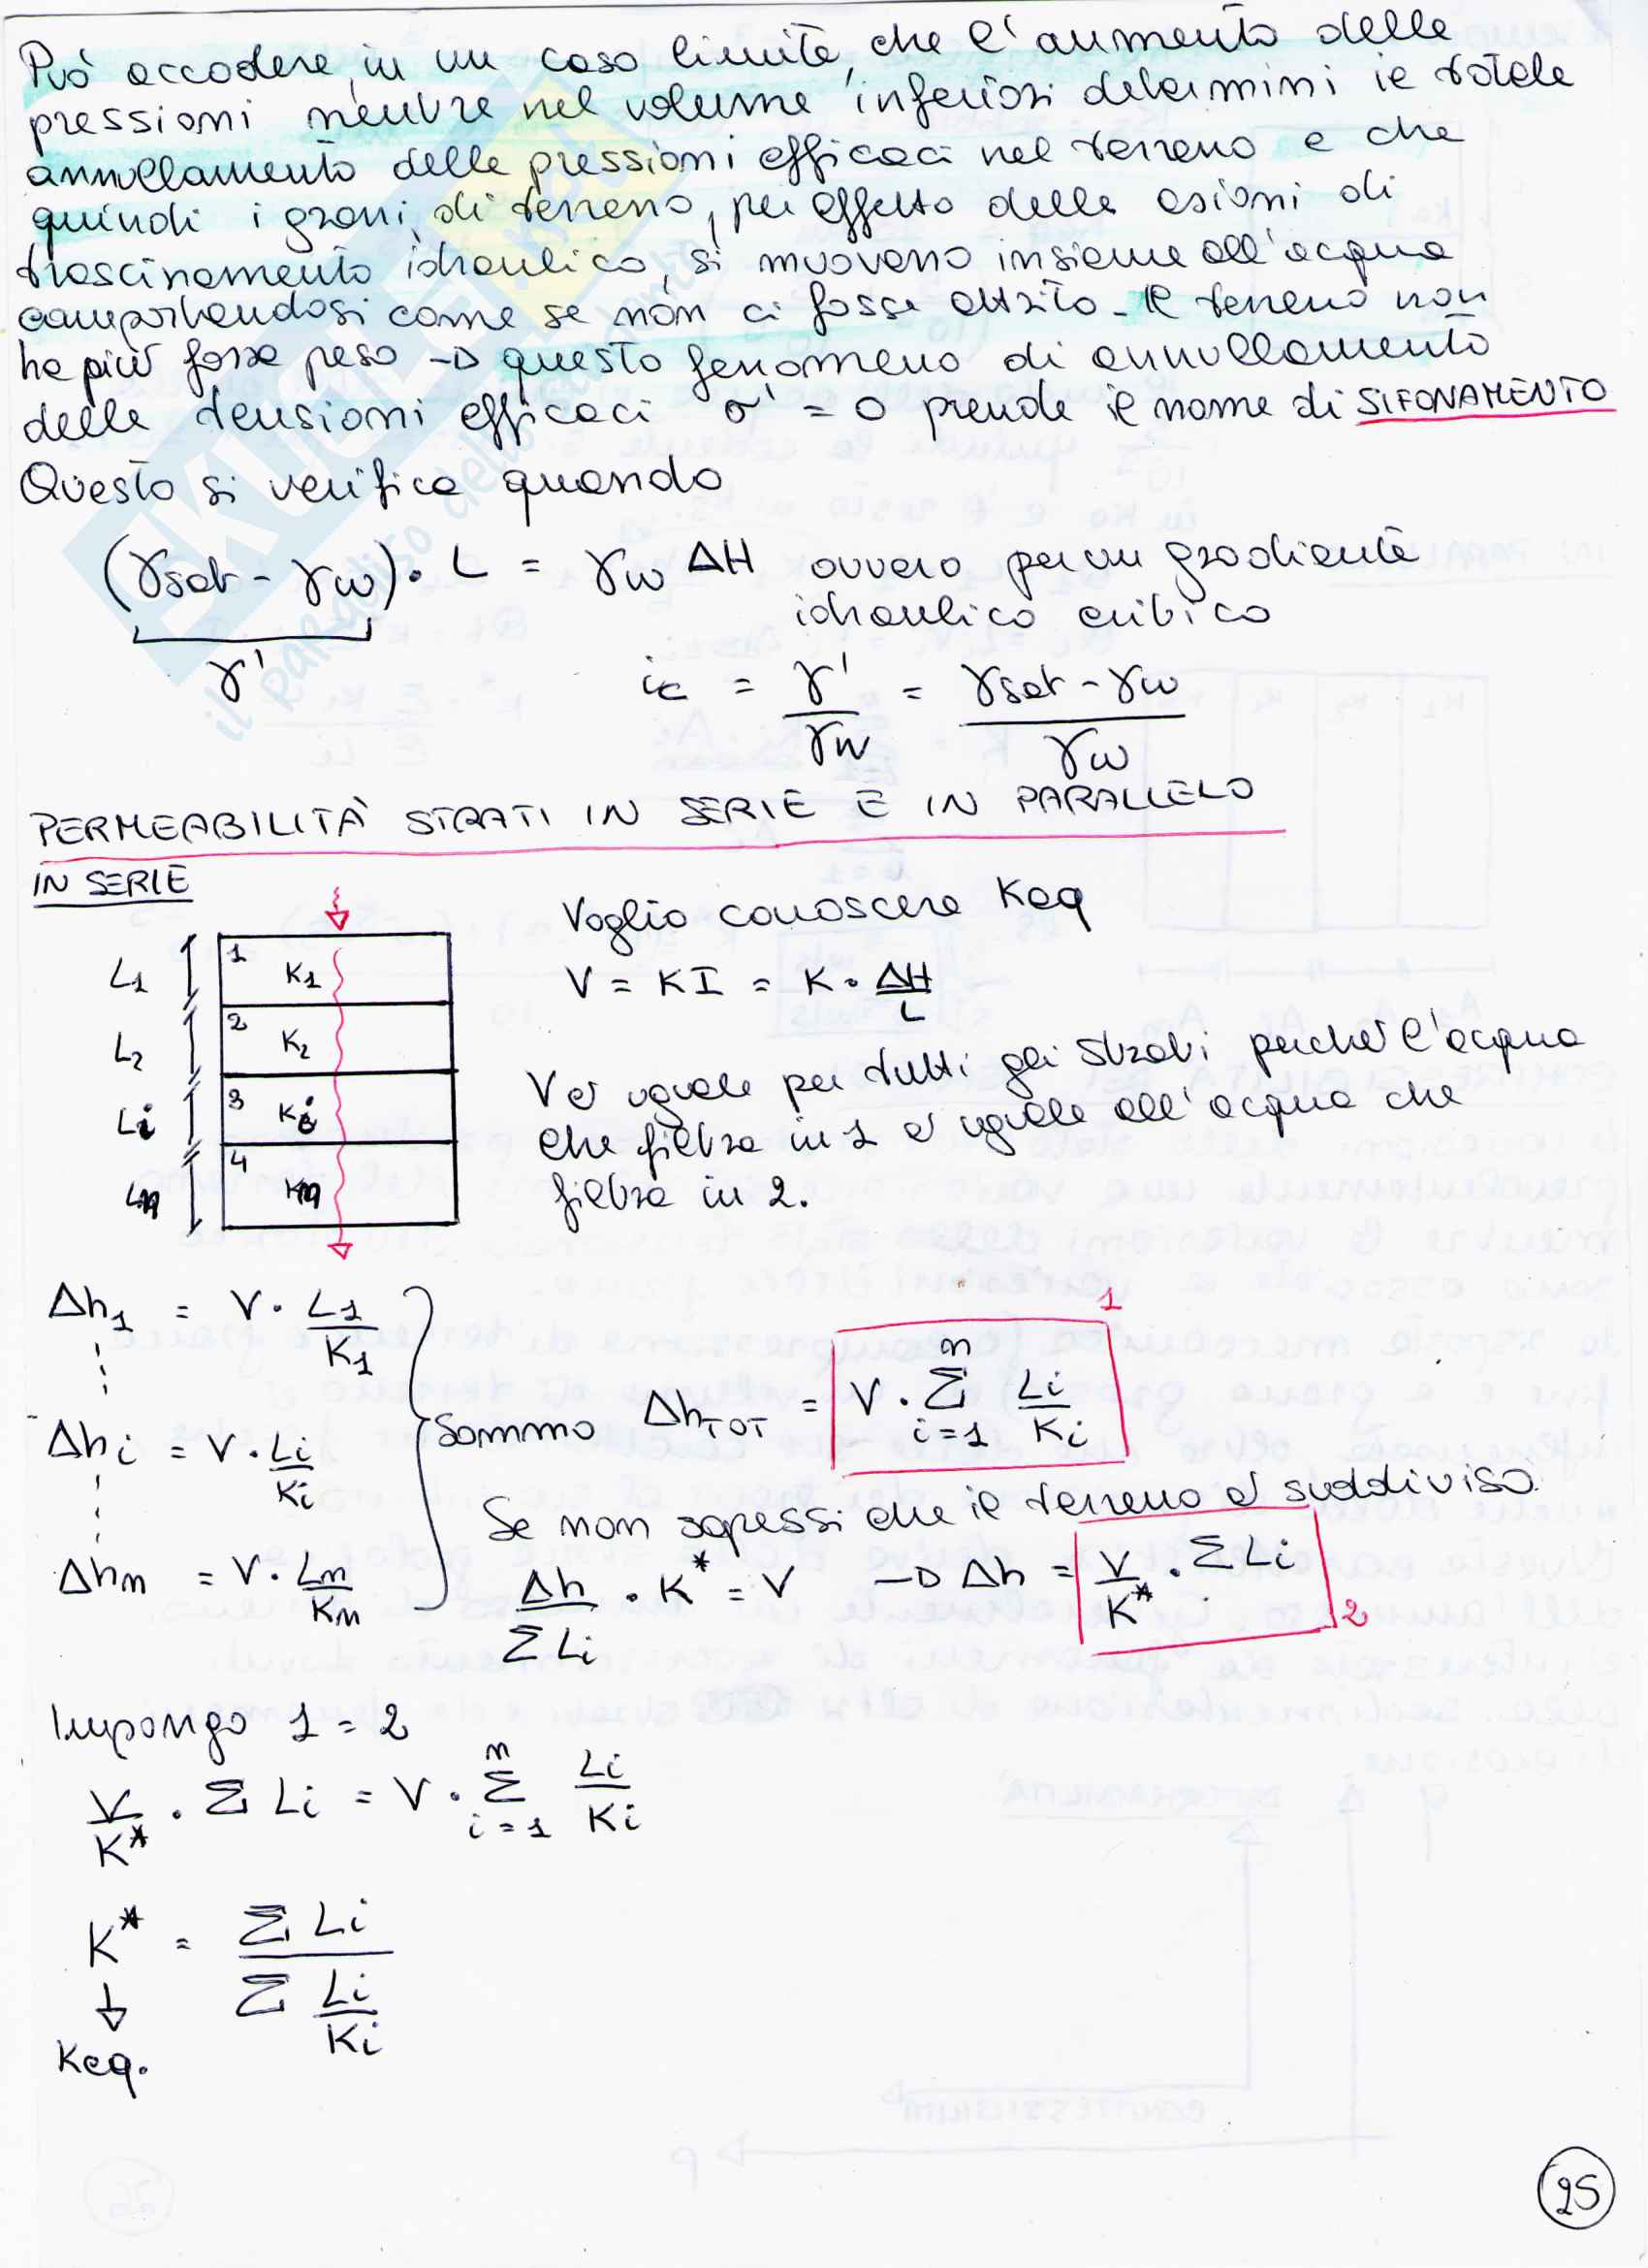 Può accadere, in un caso limite, che l'aumento delle
pressioni neutre nel volume inferiori determini il totale
annullamento delle pressioni efficaci nel terreno e che
quindi i grani, di terreno, per effetto delle azioni di
trascinamento idraulico, si muovano insieme all'acqua
comportandosi come se non ci fosse attrito - Il terreno non
ha più forza peso → questo fenomeno di annullamento
delle tensioni efficaci σ' = 0 prende il nome di SIFONAMENTO
Questo si verifica quando
(γsat - γw) · L = γw ΔH ovvero per un gradiente
idraulico critico
γ'
ic = γ'/γw = (γsat - γw)/γw
PERMEABILITÀ STRATI IN SERIE E IN PARALLELO
IN SERIE
Voglio conoscere Keq
V = KI = K · ΔH/L
L1 1 K1
L2 2 K2
Li 3 Ki
Ln 4 Kn
V è uguale per tutti gli strati perché l'acqua
che filtra in 1 è uguale all'acqua che
filtra in 2.
Δh1 = V · L1/K1
Δhi = V · Li/Ki
Δhn = V · Ln/Kn
Sommo ΔhTOT = V · Σ i=1 n Li/Ki 1
Se non sapessi che il terreno è suddiviso
Δh/ΣLi · K* = V → Δh = V/K* · ΣLi 2
Impongo 1 = 2
V/K* · Σ Li = V · Σ i=1 n Li/Ki
K* = Σ Li / Σ Li/Ki
↓
Keq.
25
EXUCLE.net
il paradiso dello